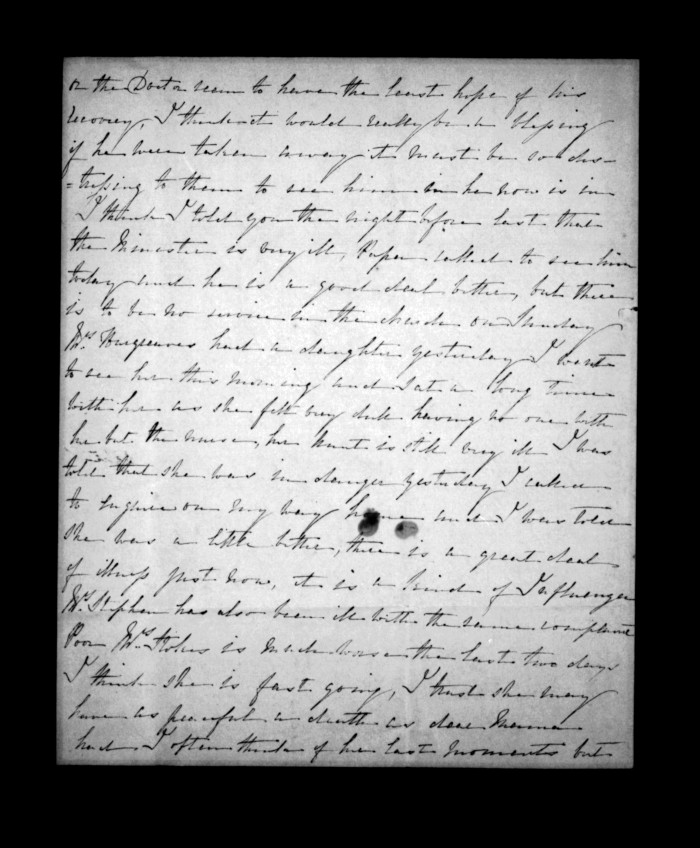 or the Doctor seem to have the least hope of his
recovery, I think it would really be a blessing
if he were taken away it must be so dis-
=tressing to them to see him in he now is in
I think I told you the night before last that
the Minister is very ill, Papa called to see him
today and he is a good deal better, but there
is to be no service in the church on Sunday
Mrs Hargreaves had a daughter yesterday I went
to see her this morning and sat a long time
with her as she felt very dull having no one with
her but the nurse, her aunt is still very ill I was
told that she was in danger yesterday I called
to enquire on my way home and I was told
she was a little better, there is a great deal
of illness just now, it is a kind of Influenza
Mrs Stephen has also been ill with the same complaint
Poor Mrs Stokes is much worse the last two days
I think she is fast going, I trust she may
have as peaceful a death as dear Mama
had I often think of her last moments but